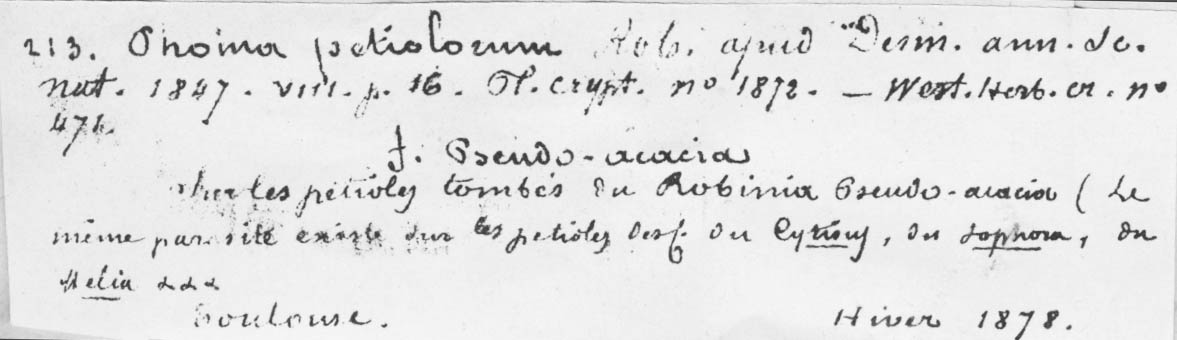 213. Phoma petiolorum Rob. apud Desm. ann. Sc.
nat. 1847. VIII. p. 16. Pl. crypt. no 1872. — West. Herb. cr. no
471.
f. Pseudo-acacia
Sur les pétioles tombés du Robinia Pseudo-acacia (Le
même parasite existe sur les petioles des f. du Cytisus, du Sophora, du
Melia &&&
Toulouse. Hiver 1878.